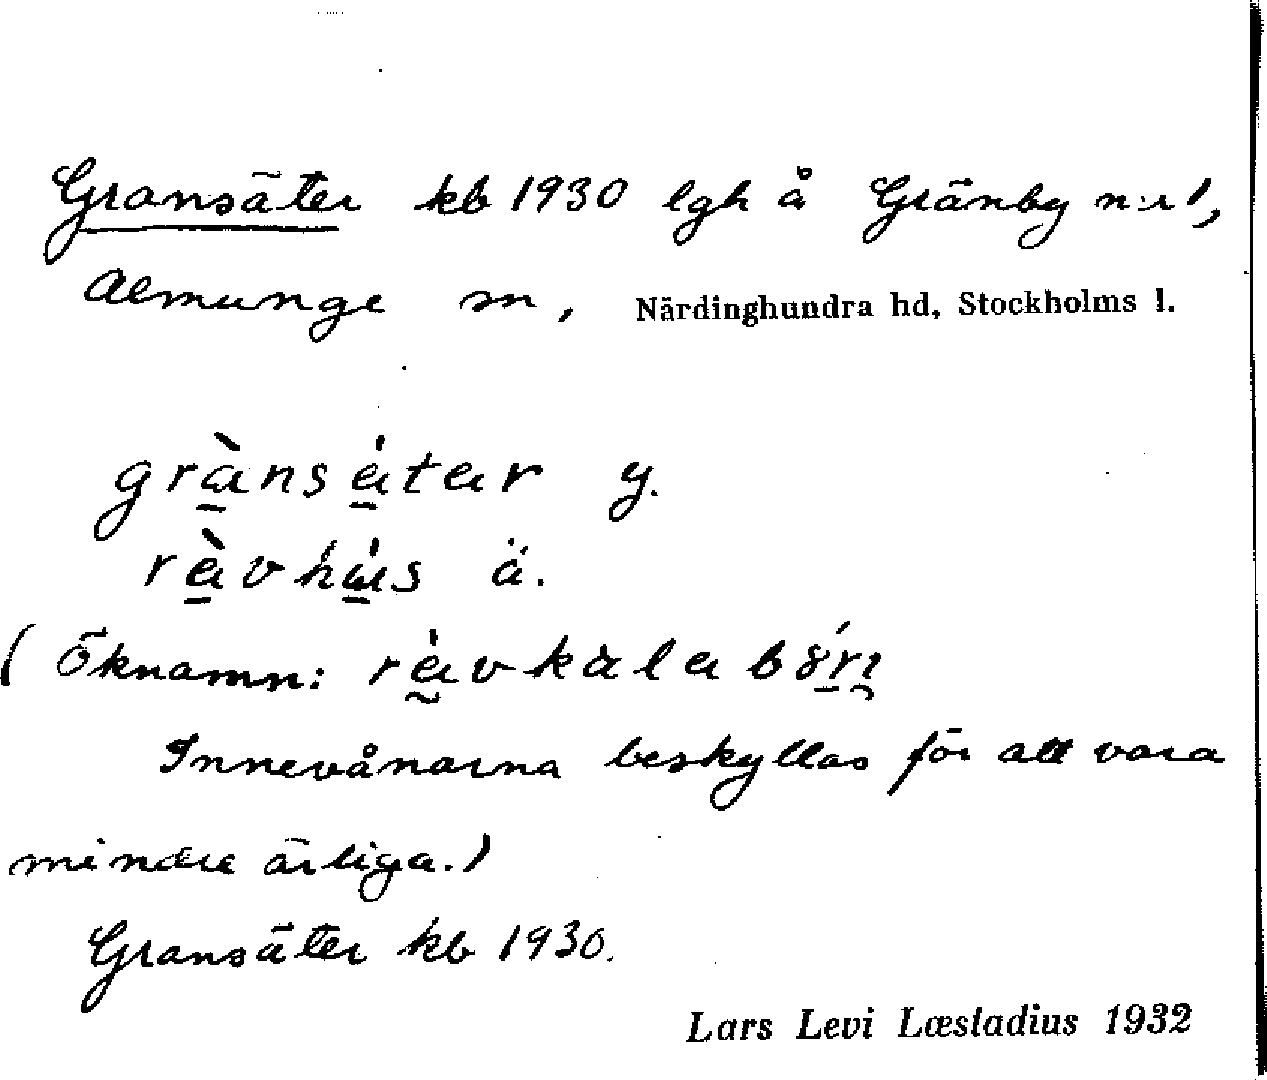 Gransäter kb 1930 lgh å Gränby n:r 1,
Almunge sn, Närdinghundra hd, Stockholms l.
grànsätar y.
rävhùs ä.
(Öknamn: rävkàla
Innevånarna beskyllas för att vara
mindre ärliga.)
Gransäter kb 1930.
Lars Levi Læstadius 1932